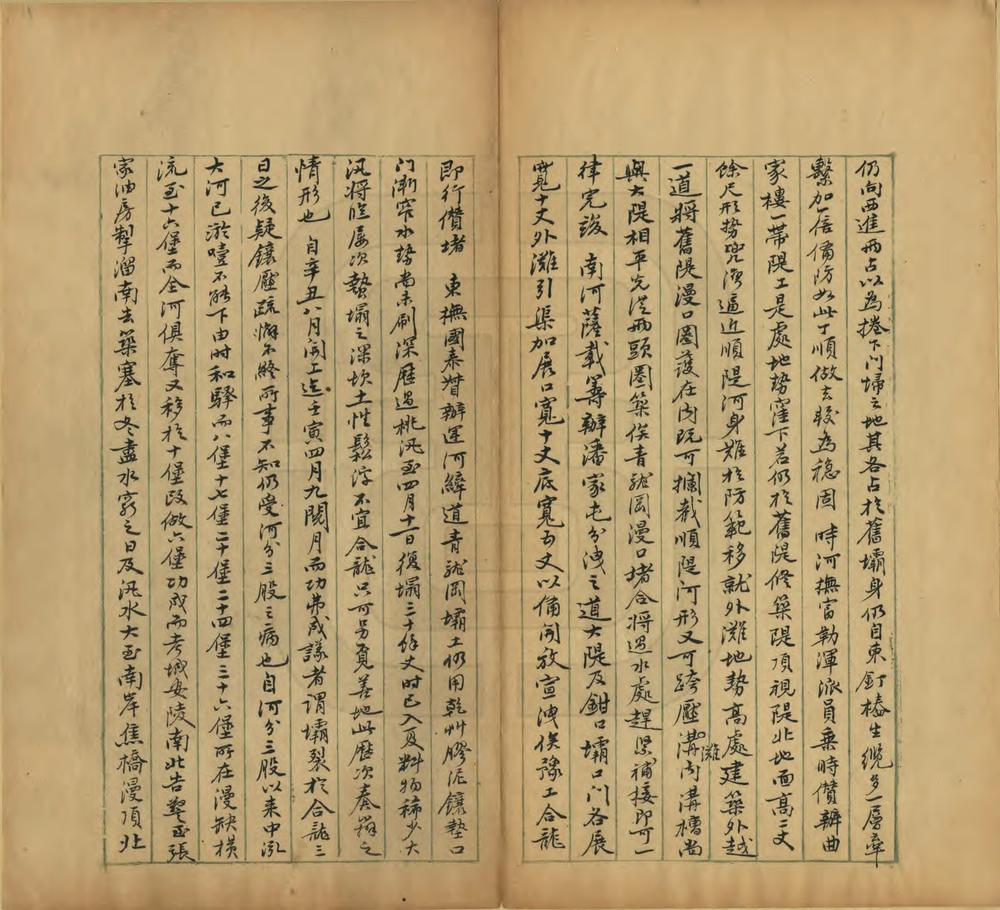 仍向西進兩占以為捲下門埽之地其各占於舊壩身仍自東釘樁生纜多一層牽
繫加一倍備防如此丁順做去較為穩固　時河撫富勒渾派員乘時儹辦曲
家樓一帶隄工是處地勢窪下若仍於舊隄修築隄頂視隄北地面高二丈
餘尺形勢兜灣逼近順隄河身難於防範移就外灘地勢高處建築外越
一道將舊隄漫口圈護在內既可攔截順隄河形又可跨壓灘溝內溝槽尚
與大隄相平先從兩頭圈築俟青龍岡漫口堵合將過水處趕緊補接即可一
律完竣　南河薩載籌辦潘家屯分洩之道大隄及鉗口壩口門各展
寬十丈外灘引渠加展口寬十丈底寬五丈以備開放宣洩俟豫工合龍
即行儹堵　東撫國泰督辦運河縴道青龍岡壩土仍用乾艸膠泥鑲墊口
門漸窄水勢尚未刷深歷過桃汛至四月十一日復塌三十餘丈時已入夏料物稀少大
汛將臨屢次蟄塌之深坎土性鬆浮不宜合龍只可另覓善地此歷次奏辦之
情形也　自辛丑八月開工迄壬寅四月九閱月而功弗成議者謂壩裂於合龍三
日之後疑鑲壓疏懈不終所事不知仍受河分三股之病也自河分三股以來中泓
大河已淤噎不能下由時和驛而八堡十七堡二十堡二十四堡三十六堡所在漫缺橫
流至十六堡而全河俱奪又移於十堡改做六堡功成而考城安陵南北告警至張
家油房掣溜南去築塞於冬盡水窮之日及汛水大至南岸焦橋漫頂北